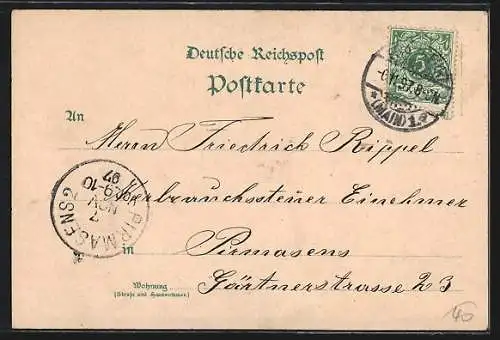 Deutsche Reichspost
Postkarte
An
Herrn Friedrich Rippel
Verbrauchssteuer Einehmer
in Pirmasens
Wohnung
(Straße und Hausnummer)
Gärtnerstrasse 23
5
97.8-
(MAIN) 1.
PIRMASENS
7
NOV
9-10
97
40